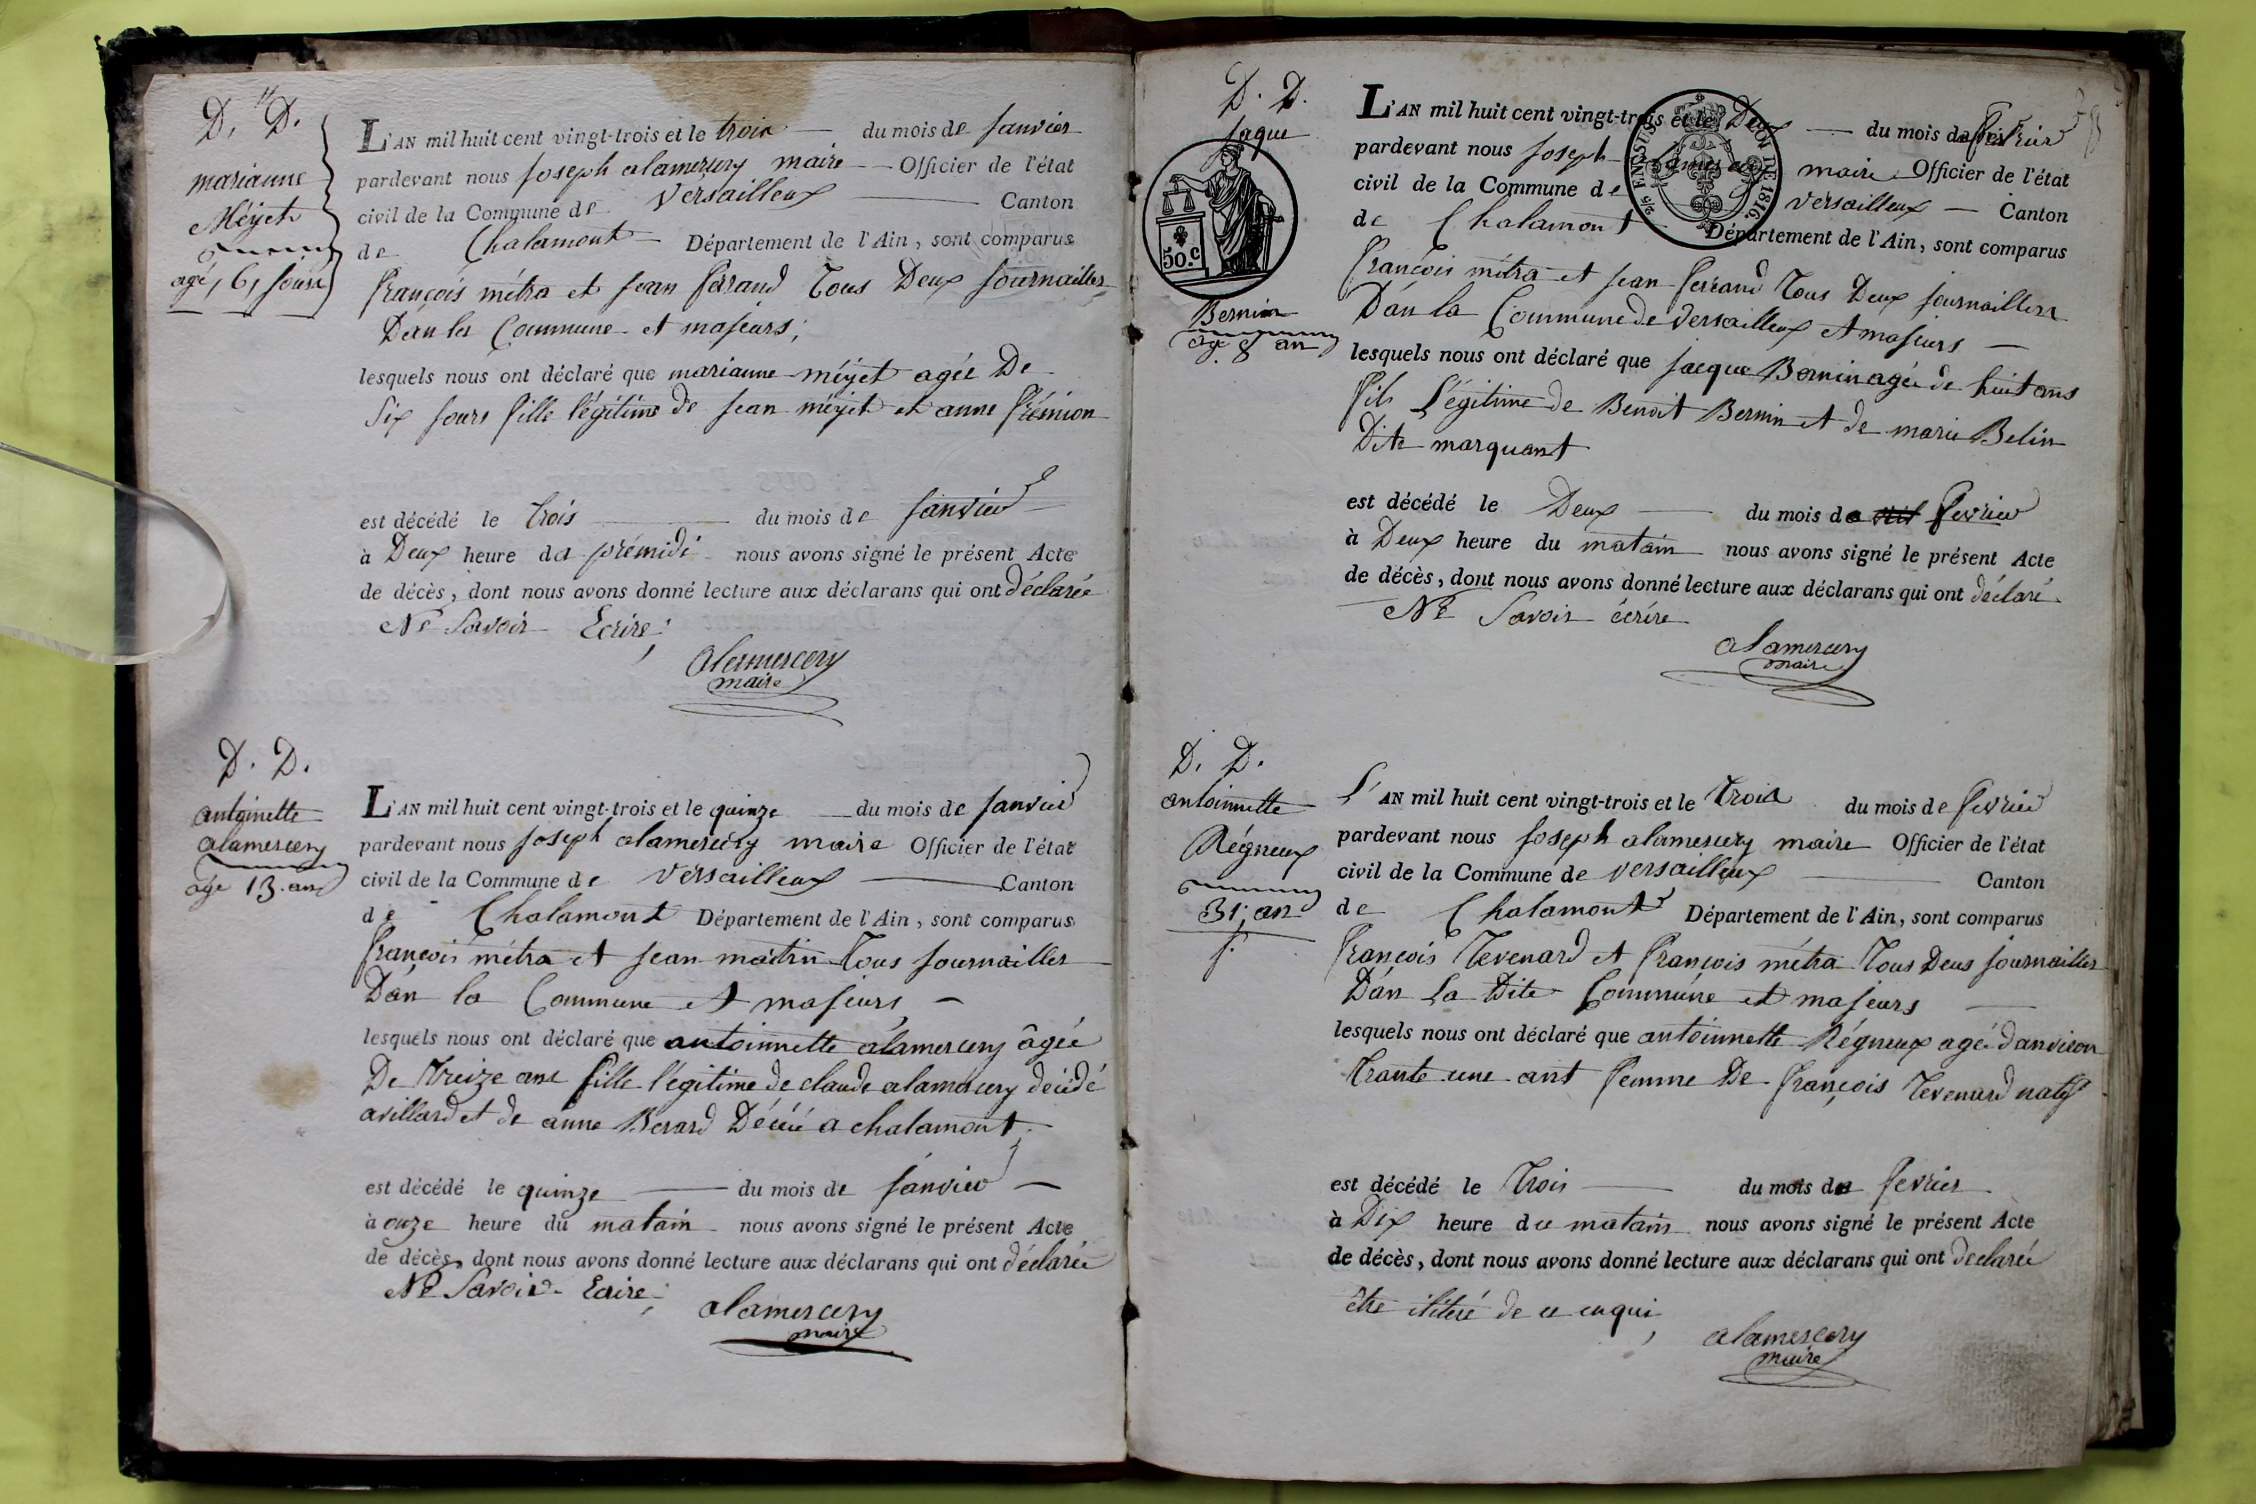 D. D.
marianne
Méyet
agé, 6, jours
L'AN mil huit cent vingt-trois et le trois du mois de janvier
pardevant nous joseph alamercery maire Officier de l'état
civil de la Commune de versailleux Canton
de Chalamont Département de l'Ain, sont comparus
françois métra et jean ferrand tous Deux journaillers
Dan la Commune et majeurs;
lesquels nous ont déclaré que marianne méyet agée De
six jours fille légitime de jean méyet et anne frémion
est décédé le trois du mois de janvier
à Deux heure da prémidi nous avons signé le présent Acte
de décès, dont nous avons donné lecture aux déclarans qui ont déclarée
Ne Savoir Ecrire;
alamercery
maire
D. D.
antoinette
alamercery
age 13. ans
L'AN mil huit cent vingt-trois et le quinze du mois de janvier
pardevant nous joseph alamercery maire Officier de l'état
civil de la Commune de versailleux Canton
de Chalamont Département de l'Ain, sont comparus
françois métra et jean matrin tous journailler
Dan la Commune et majeurs
lesquels nous ont déclaré que antoinnette alamercery âgée
De treize ans fille légitime de claude alamercery décédé
avillard et de anne Berard Décéé a chalamont;
est décédé le quinze du mois de janvier
à onze heure du matain nous avons signé le présent Acte
de décès, dont nous avons donné lecture aux déclarans qui ont déclarée
Ne Savoir Ecrire;
alamercery
maire
D. D.
jaque
50.c
Bernin
age 8 an
L'AN mil huit cent vingt-trois et le Deux du mois de fevrier
pardevant nous joseph alamercery maire Officier de l'état
civil de la Commune de versailleux Canton
de Chalamont Département de l'Ain, sont comparus
françois métra et jean ferrand tous Deux journaillers
Dan la Commune de versailleux et majeurs
lesquels nous ont déclaré que jacque Bernin agée de huit ans
fils Légitime de Benoit Bernin et de marie Belin
Dite marquant
est décédé le Deux du mois de fevrier
à Deux heure du matain nous avons signé le présent Acte
de décès, dont nous avons donné lecture aux déclarans qui ont déclaré
Ne Savoir écrire
alamercery
maire
D. D.
antoinnette
Régneux
31, an
L'AN mil huit cent vingt-trois et le trois du mois de fevrier
pardevant nous joseph alamercery maire Officier de l'état
civil de la Commune de versailleux Canton
de Chalamont Département de l'Ain, sont comparus
françois tevenard et françois métra tous Deus journailler
Dan La Dite Commune et majeurs
lesquels nous ont déclaré que antoinnette Régneux agée danviron
trante une ant femme De françois tevenard natif
est décédé le trois du mois de fevrier
à Dix heure du matain nous avons signé le présent Acte
de décès, dont nous avons donné lecture aux déclarans qui ont declarée
être iliteré de ce enqui
alamercery
maire